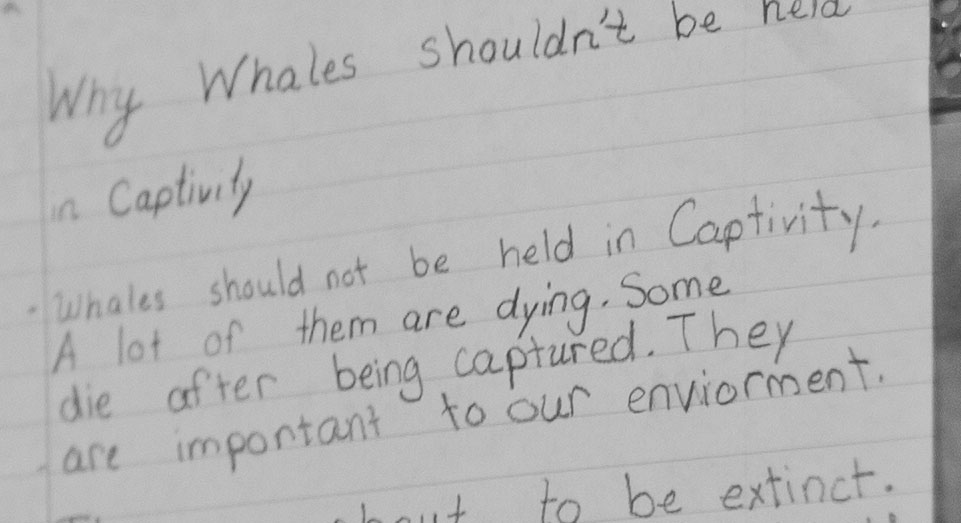 Why Whales shouldn't be held
in Captivity
- Whales should not be held in Captivity.
A lot of them are dying. Some
die after being captured. They
are important to our enviorment.
about to be extinct.